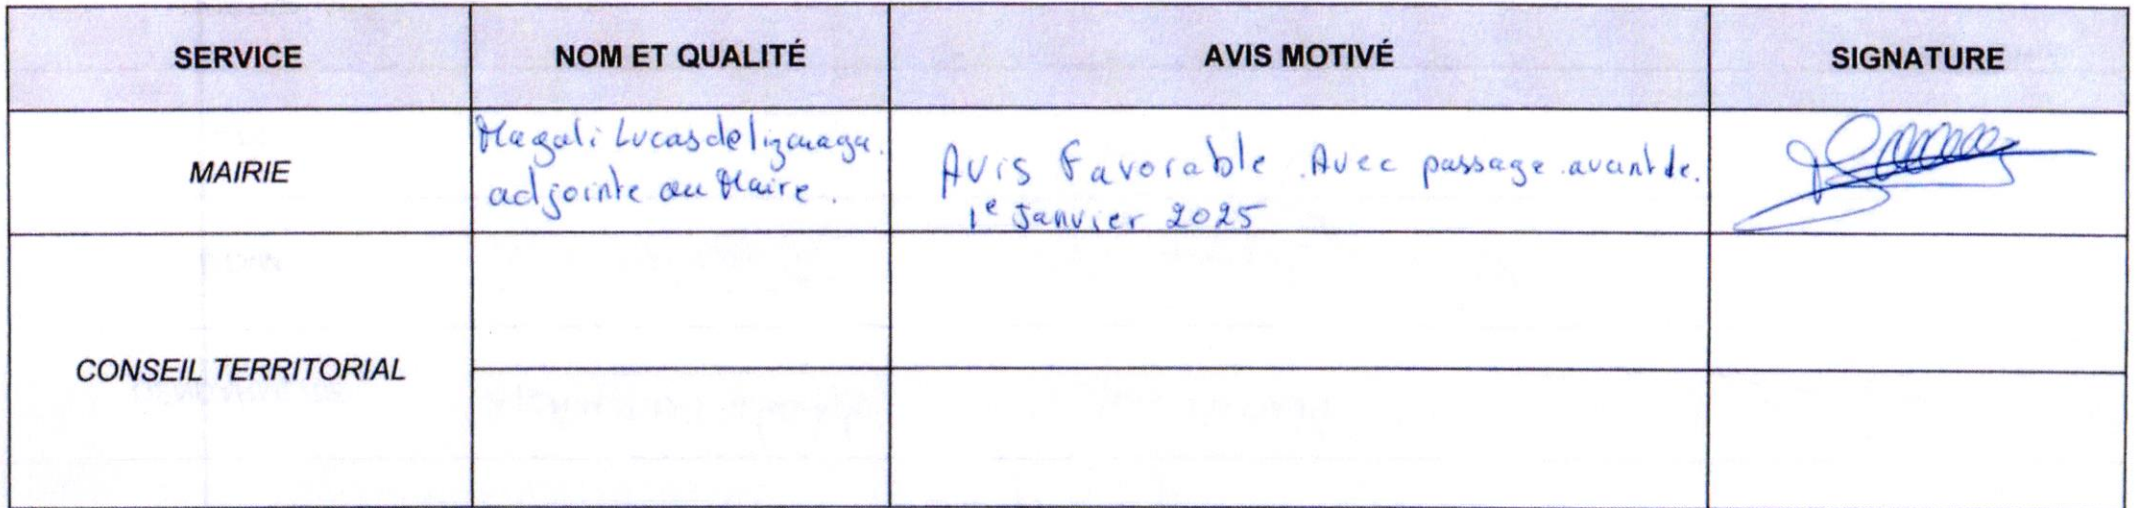 SERVICE NOM ET QUALITÉ AVIS MOTIVÉ SIGNATURE
MAIRIE
Magali Lucas de lizanaga.
adjointe au Maire.
Avis Favorable. Avec passage avant de.
1e Janvier 2025
CONSEIL TERRITORIAL